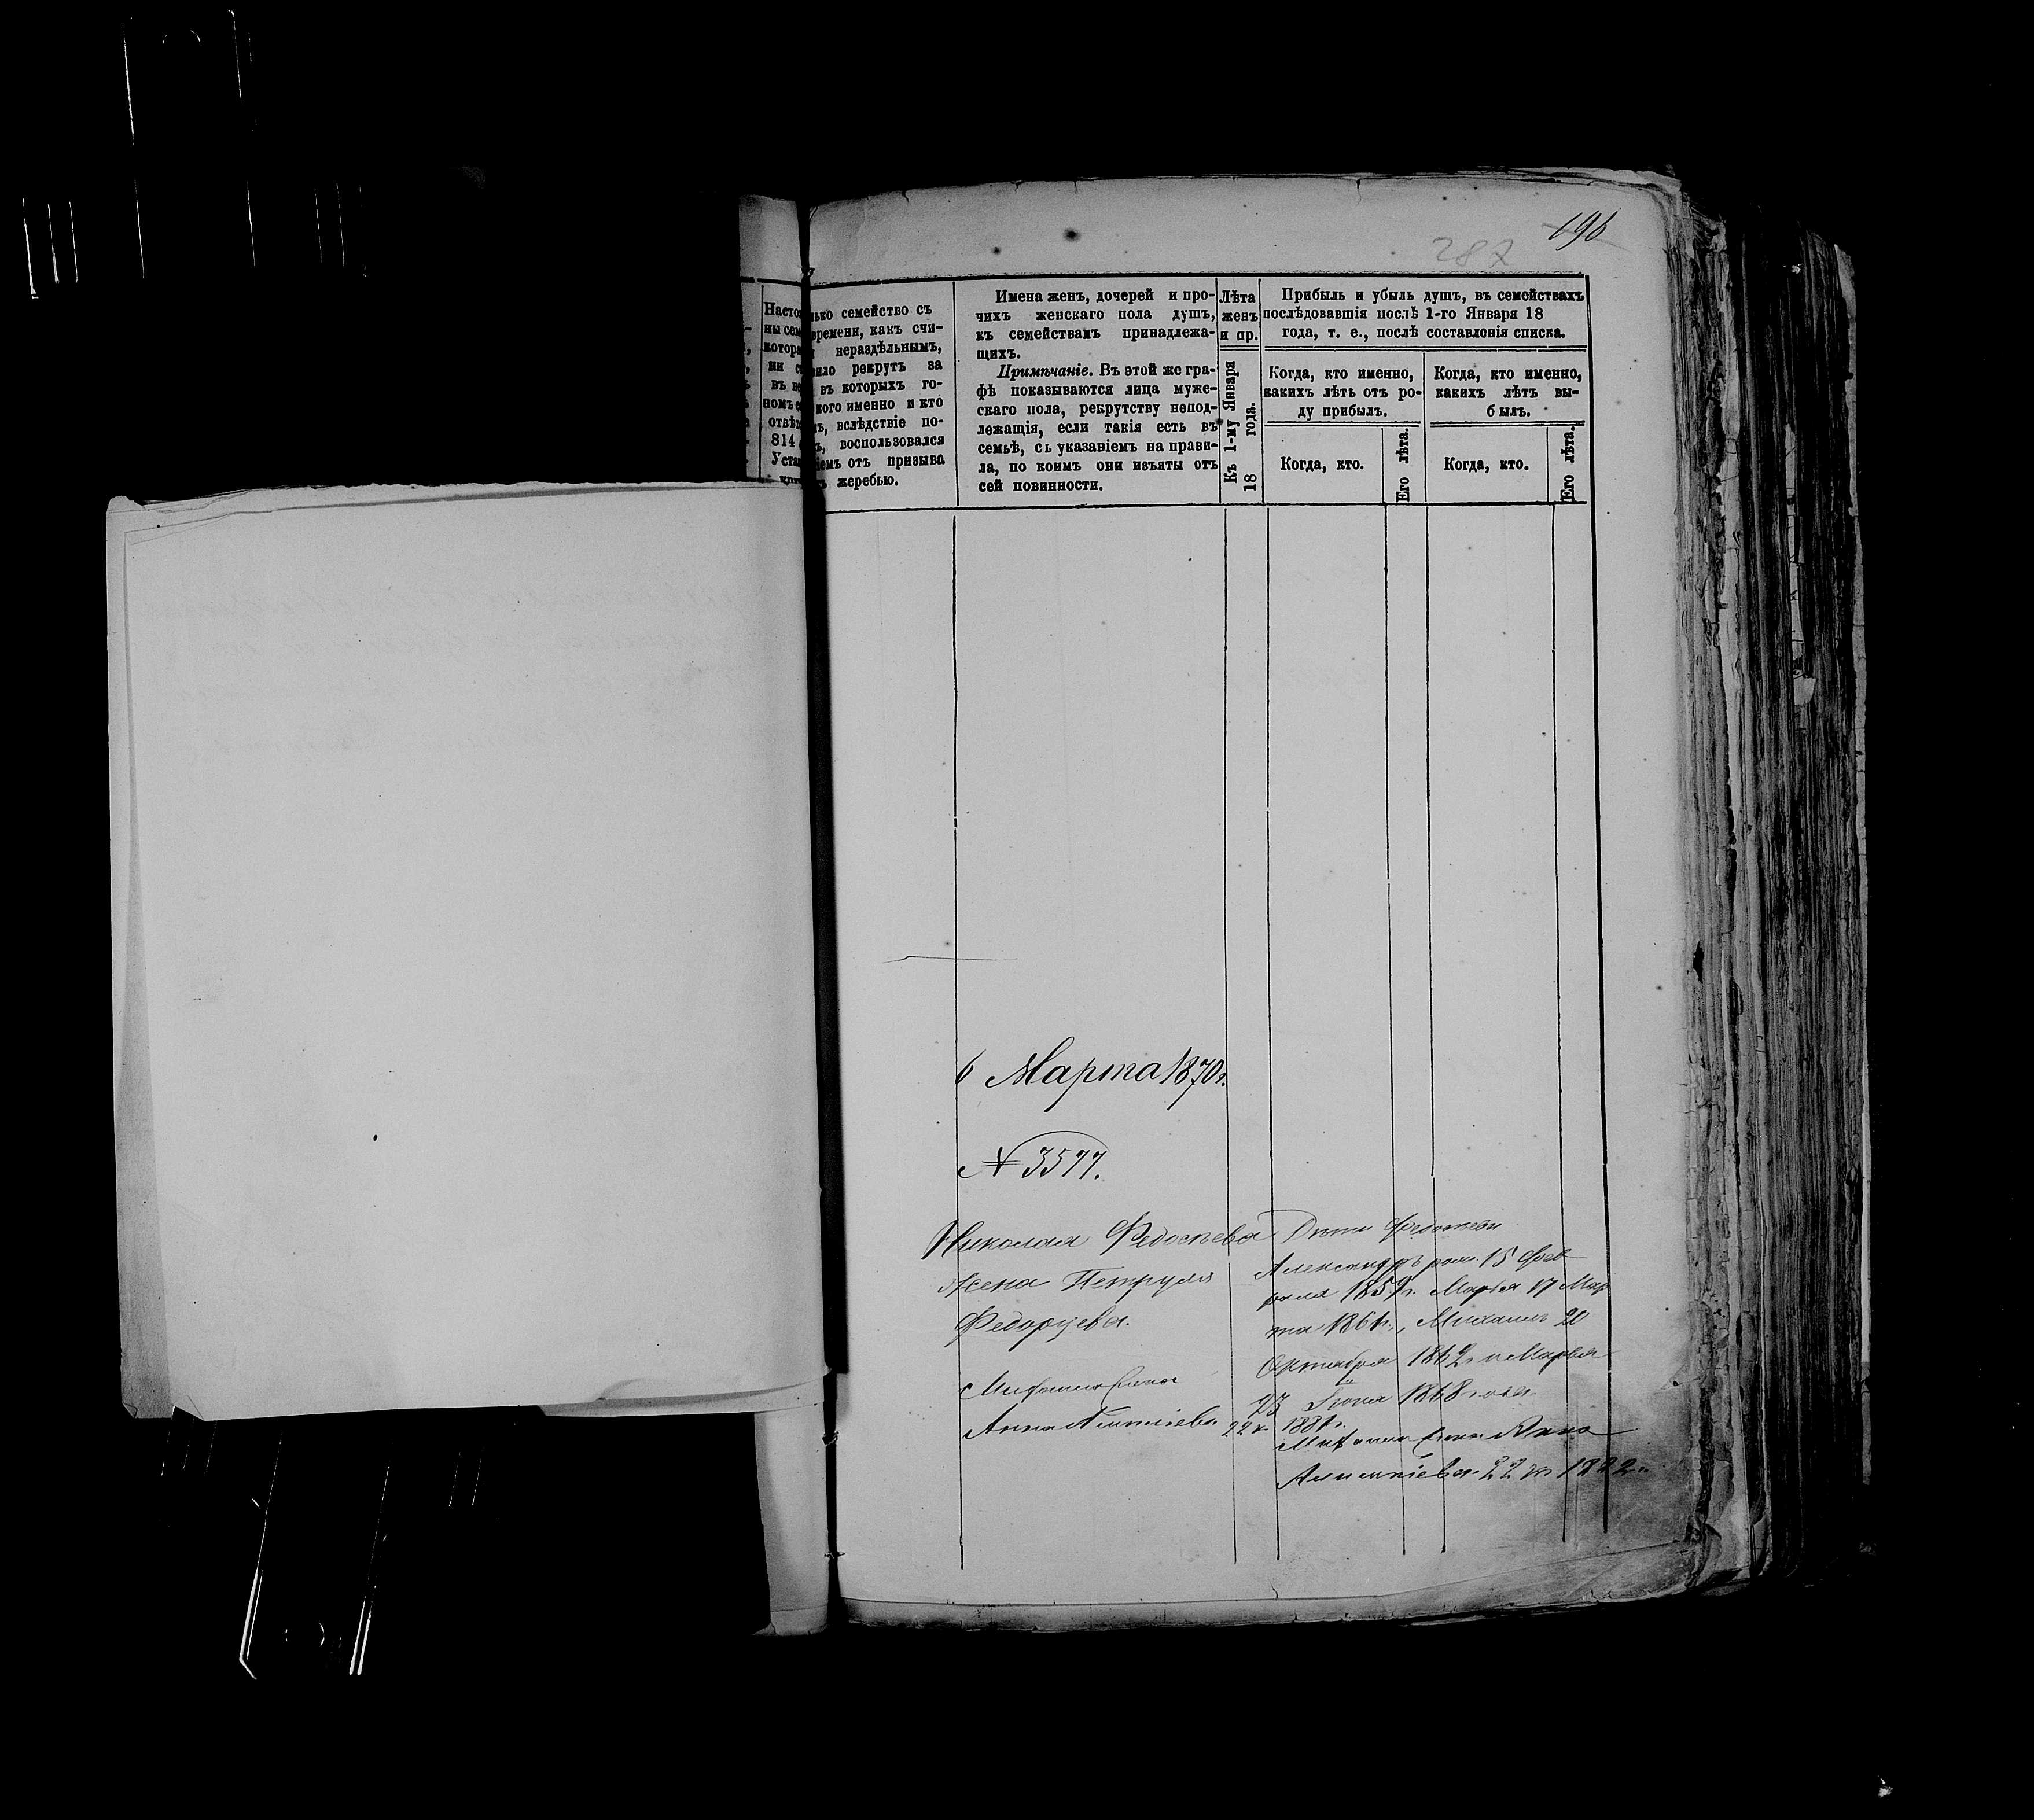 196
287
Насто
ны сем
котора
814
лько семейство съ
времени, какъ счи-
нераздѣльнымъ,
вило рекрутъ за
въ которыхъ го-
кого именно и кто
ъ, вслѣдствіе по-
ъ, воспользовался
іемъ отъ призыва
ъ жеребью.
Имена женъ, дочерей и про-
чихъ женскаго пола душъ,
къ семействамъ принадлежа-
щихъ.
Примѣчаніе. Въ этой же гра-
фѣ показываются лица муже-
скаго пола, рекрутству непод-
лежащія, если такія есть въ
семьѣ, съ указаніемъ на прави-
ла, по коимъ они изъяты отъ
сей повинности.
Лѣта
женъ
и пр.
Къ 1-му Января
18 года.
Прибыль и убыль душъ, въ семействахъ
послѣдовавшія послѣ 1-го Января 18
года, т. е., послѣ составленія списка.
Когда, кто именно,
какихъ лѣтъ отъ ро-
ду прибылъ.
Когда, кто.
Его лѣта.
Когда, кто именно,
какихъ лѣтъ вы-
былъ.
Когда, кто.
Его лѣта.
6 Марта 1870 г.
№ 3577.
Николая Федосѣева
жена Петруля
Федорцева.
Анна
22
Дѣти
Александръ род. 15 Фев
раля 1859 г. Марья 17 Мар
та 1861 г., Михаилъ 20
Октября 1862 г. и Марья
23 Іюня 1868 года
1881 г.
жена Анна
22